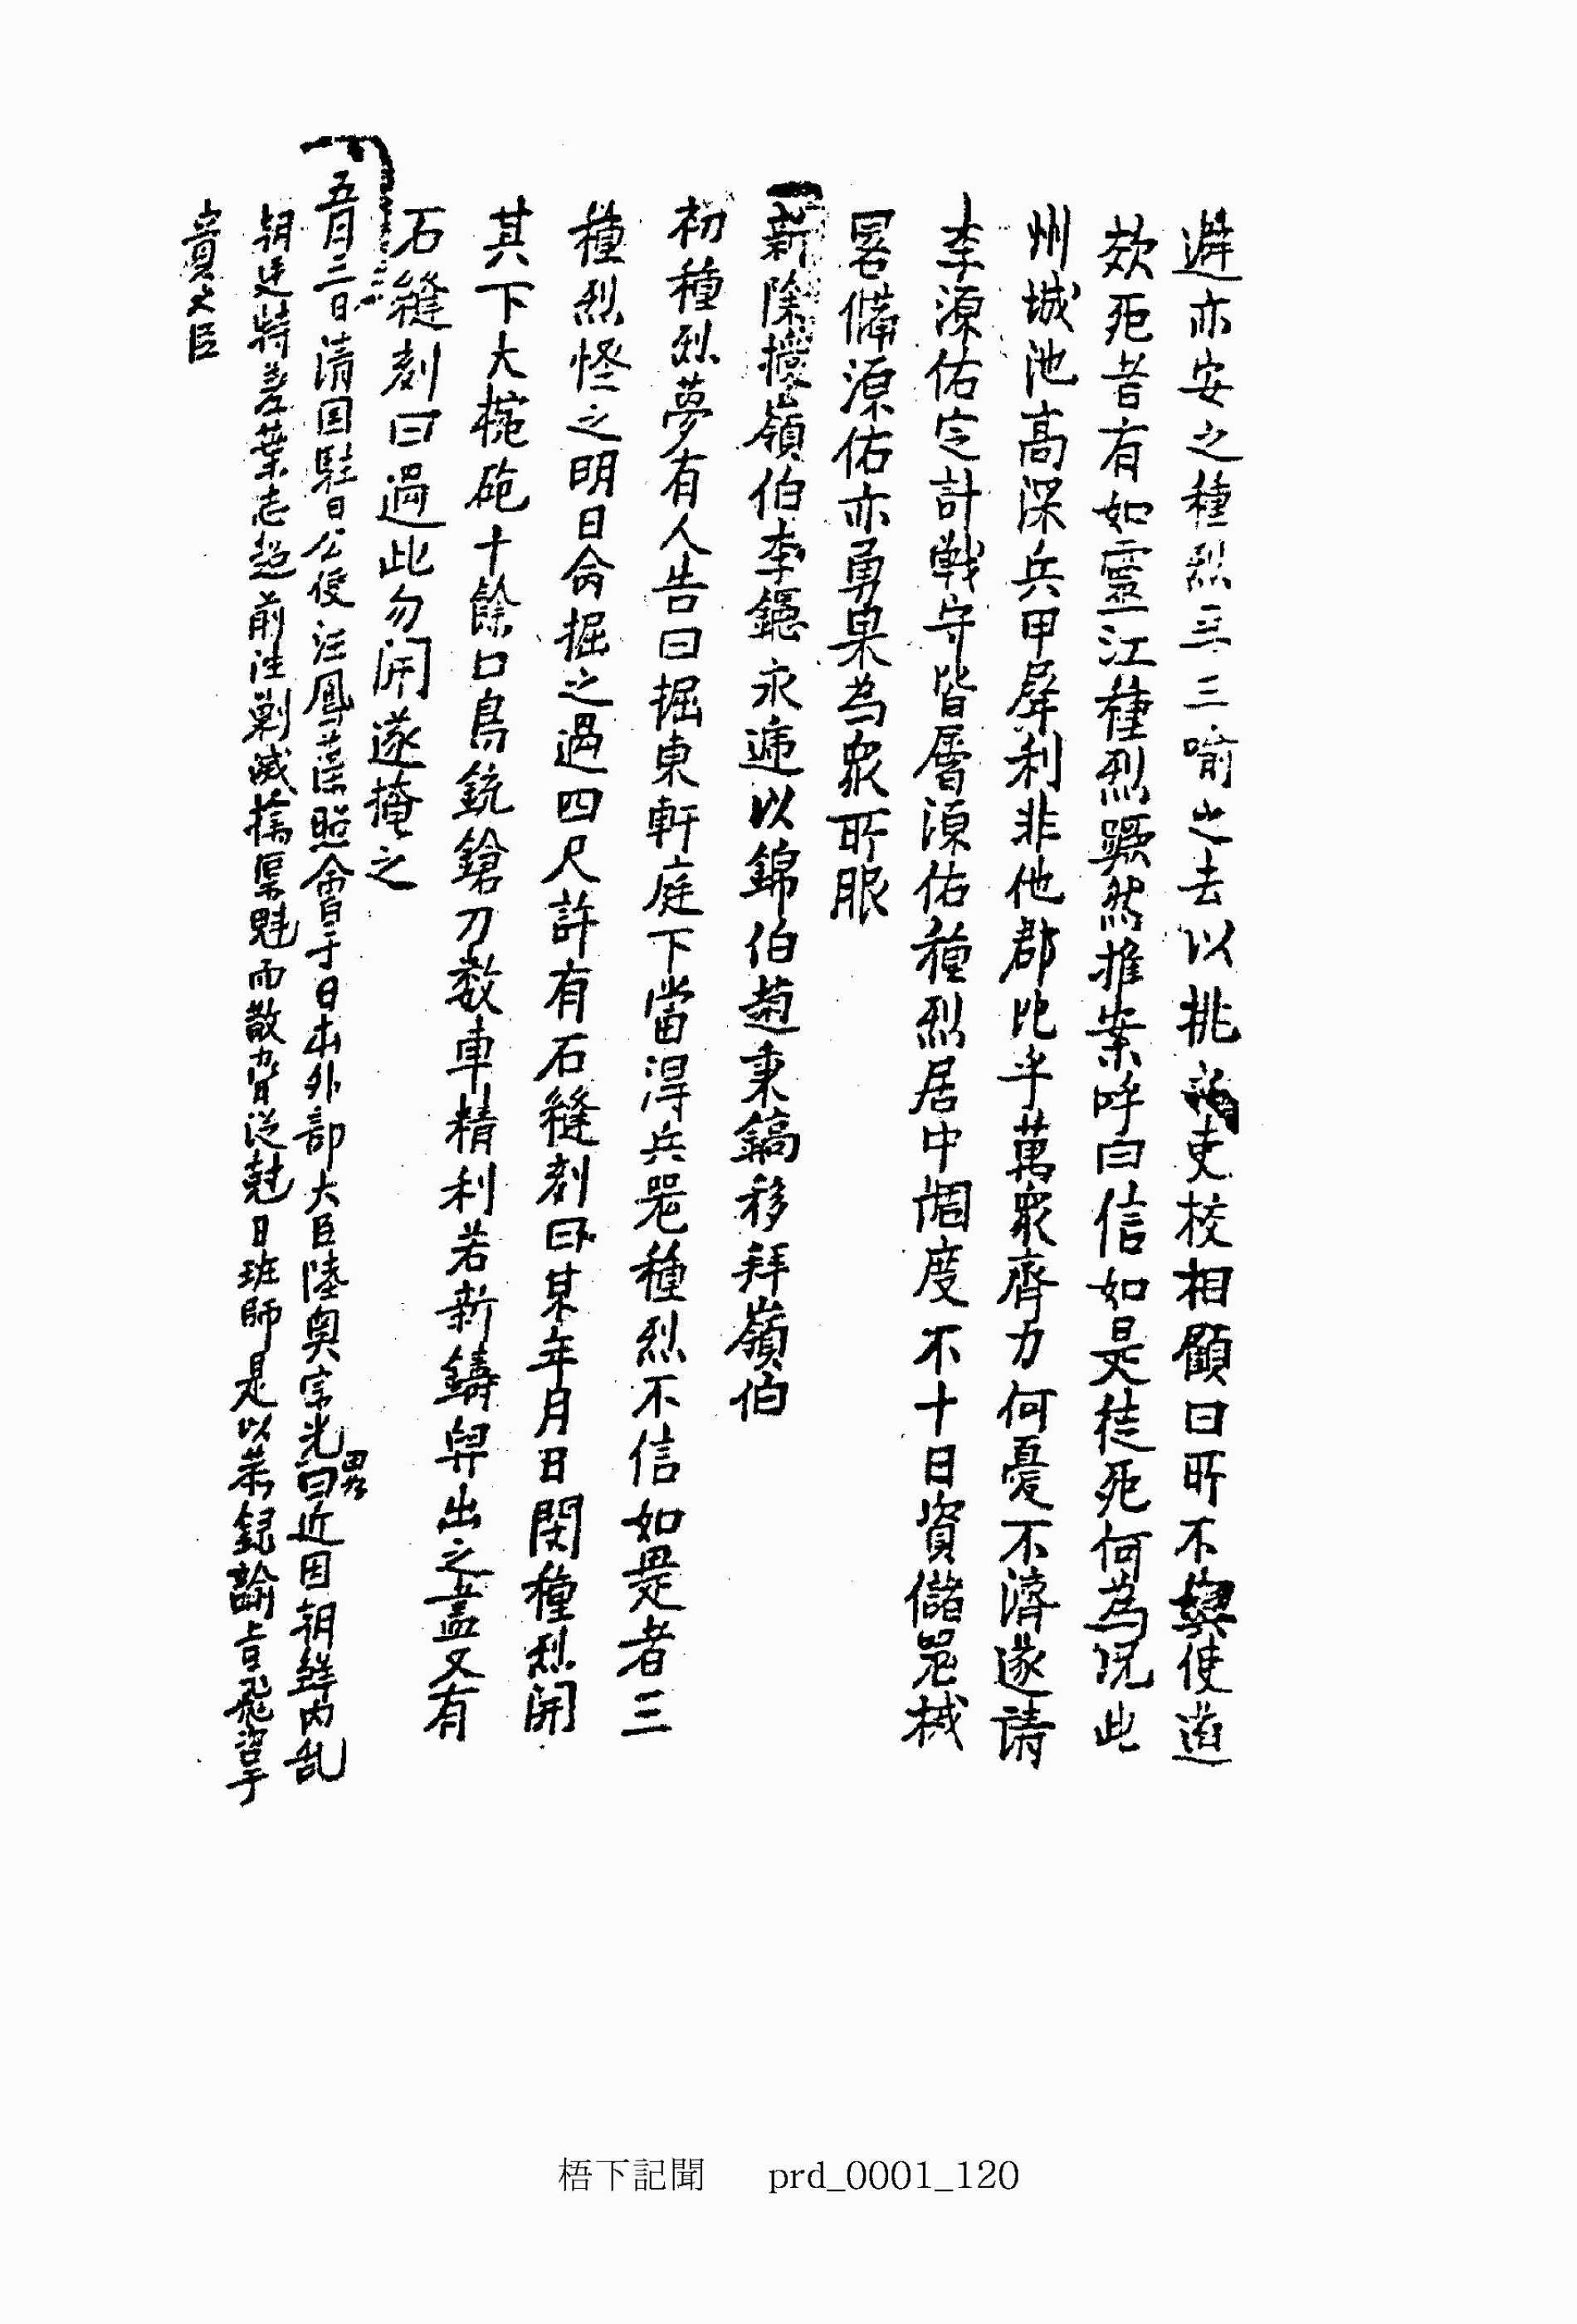 避亦安之種烈三三喻之去以挑 吏校相顧曰所不與使道
欬死者有如靈江種烈蹶然推案呼曰信如是徒死何為況此
州城池高深兵甲犀利非他郡比乎萬衆齊力何憂不濟遂請
李源佑定計戰守皆層源佑種烈居中調度不十日資儲器械
畧備源佑亦勇果為衆所服
新除授嶺伯李𨯶永遞以錦伯趙秉鎬移拜嶺伯
初種烈夢有人告曰掘東軒庭下當淂兵器種烈不信如是者三
種烈恠之明日命掘之過四尺許有石縫刻曰某年月日閔種烈開
其下大椀砲十餘口鳥銃鎗刀数車精利若新鑄舁出之盖又有
石縫刻曰過此勿開遂掩之
五月三日清国駐日公使汪鳳藻照會于日本外部大臣陸奥宗光畧曰近因朝鮮内乱
朝廷特差葉志超前往剿滅擒渠魁而散脅従尅日班師是以茶録諭旨飛咨于
貴大臣
梧下記聞 prd_0001_120